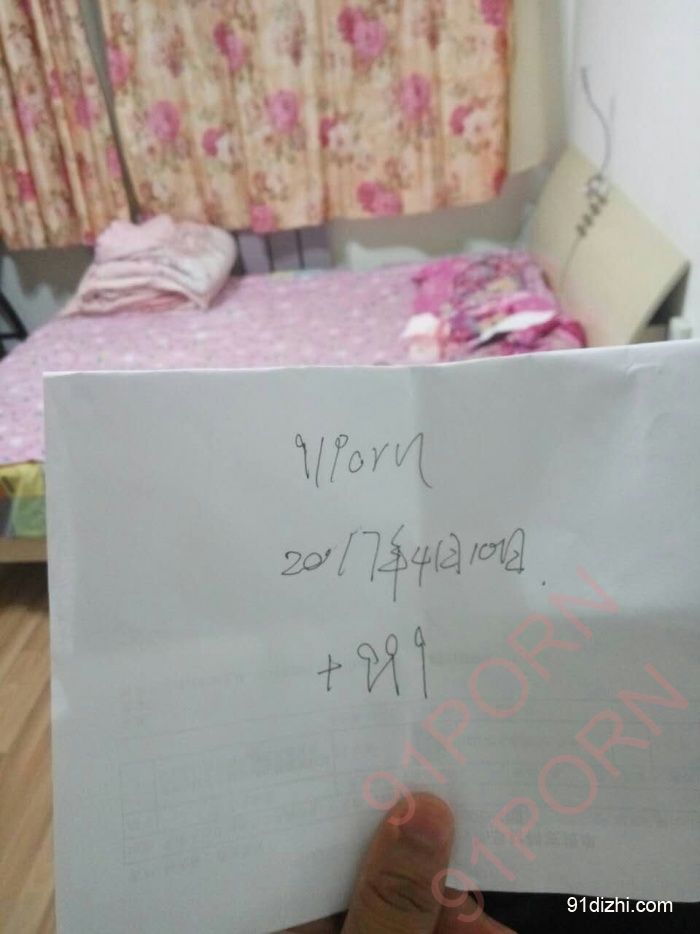 91Porn
2017年4月10日.
+999
91PORN
91PORN
91dizhi.com